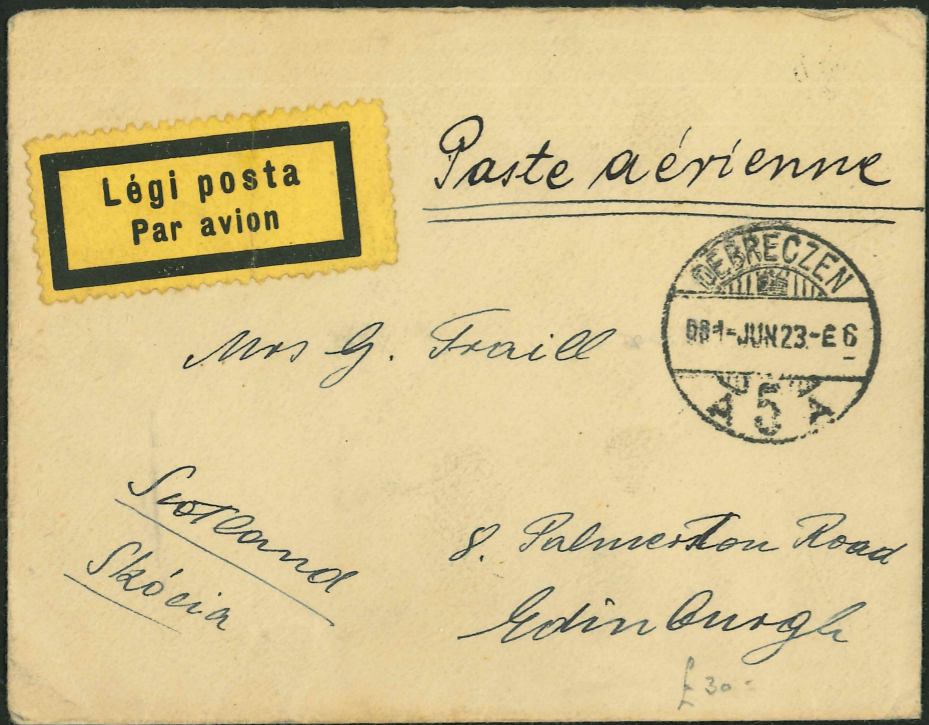 Légi posta
Par avion
Poste aérienne
DEBRECZEN
-JUN 23.-E 6
A 5 A
Mrs G. Traill
Scotland
Skócia
8. Palmerston Road
Edinburgh
£30-